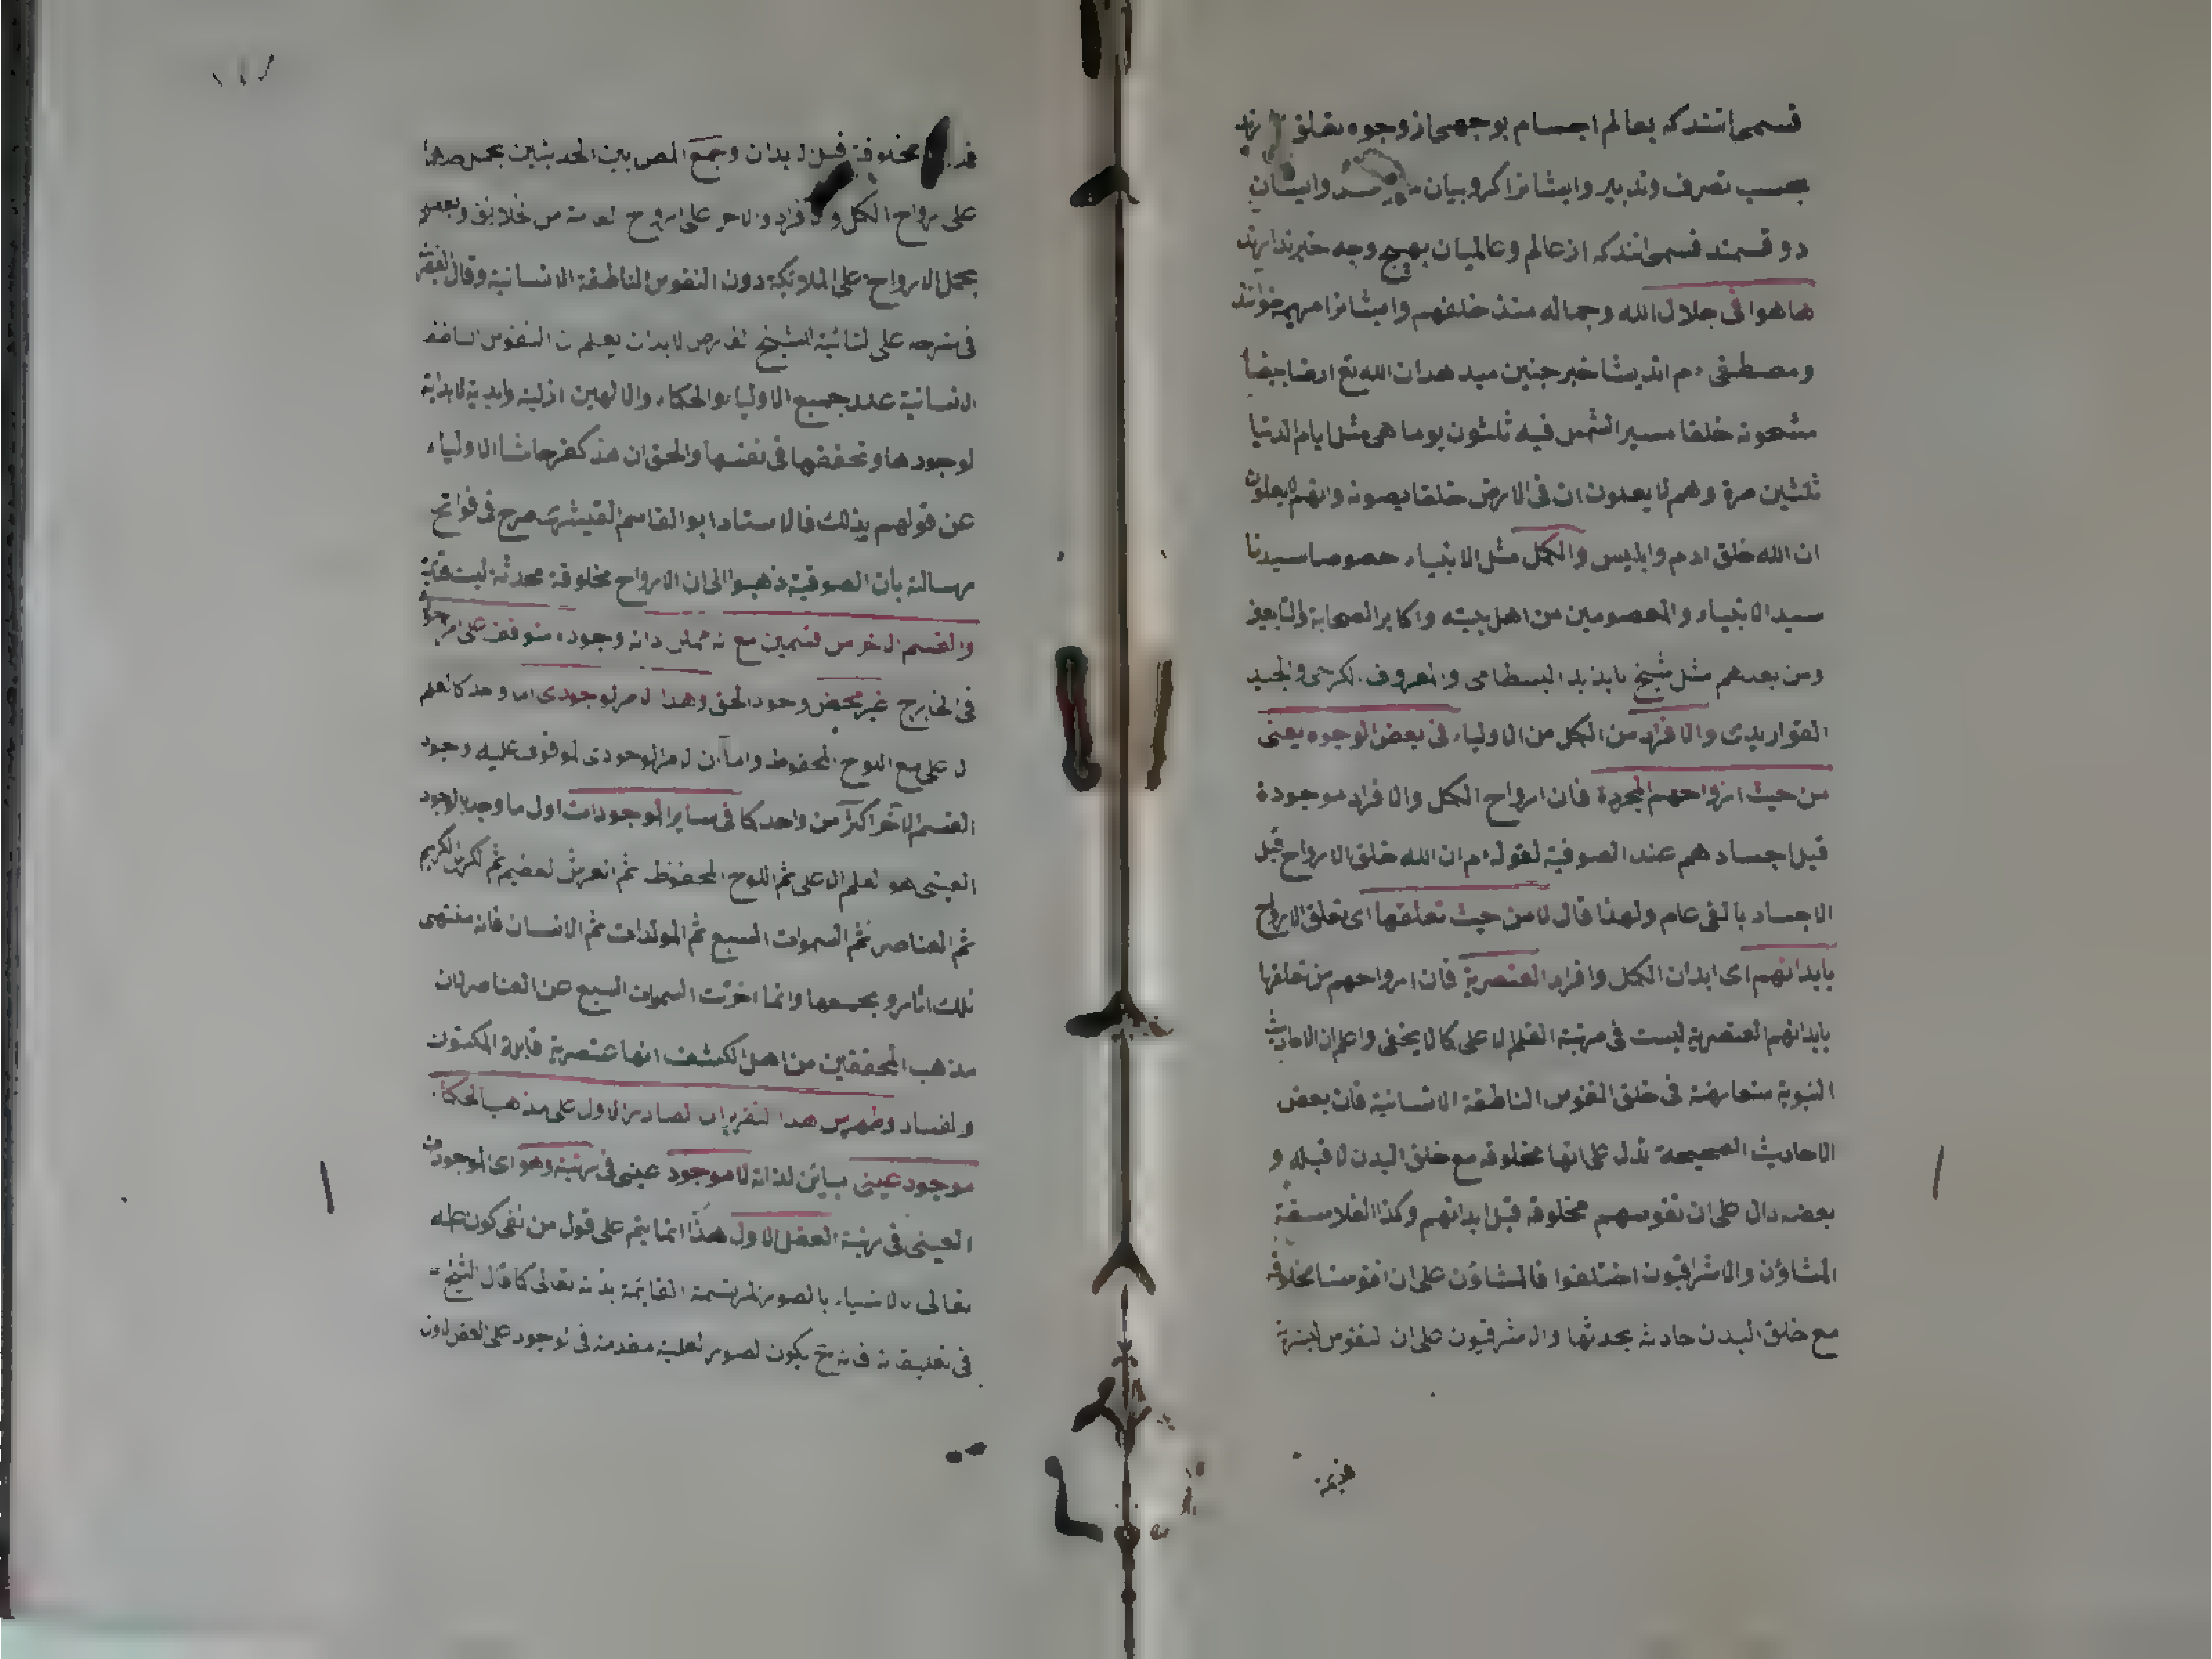 قسمی انند که بعالم اجسام بوجهی از وجوه تعلق
بحسب تصرف وتدبیر وایشانرا کروبیان وایشان
دو قسمند قسمی انند که از عالم وعالمیان بهیچ وجه خبر ندارند
هاهوا فی جلال الله وجماله منذ خلقهم وایشانرا مهیمه خوانند
ومصطفی م اندیشا خبر چنین میدهد ان الله تع ارضا بیضا
مشحونه خلقا مسیر الشمس فیه ثلثون یوما هی مثل ایام الدنیا
ثلثین مرة وهم لا یعلمون ان فی الارض خلقا یعصونه وانهم لا یعلمون
ان الله خلق ادم وابلیس والکمل مثل الانبیاء خصوصا سیدنا
سید الانبیاء والمعصومین من اهل بیته واکابر الصحابة والتابعین
ومن بعدهم مثل شیخ بایذید البسطامی والمعروف الکرخی والجنید
القواریری والافراد من الکمل من الاولیاء فی بعض الوجوه یعنی
من حیث ارواحهم المجردة فان ارواح الکمل والافراد موجودة
قبل اجسادهم عند الصوفیة لقوله م ان الله خلق الارواح قبل
الاجساد بالفی عام ولهذا قال لا من حیث تعلقها ای تعلق الارواح
بابدانهم ای ابدان الکمل وافراد العنصریة فان ارواحهم من تعلقها
بابدانهم العنصریة لیست فی مرتبة القلم الاعلی کما لا یخفی واعلم ان الاحادیث
النبویة متعارضة فی خلق النفوس الناطقة الانسانیة فان بعض
الاحادیث الصحیحة تدل علی انها مخلوقه مع خلق البدن لا قبله و
بعضه دال علی ان نفوسهم مخلوقة قبل ابدانهم وکذا الفلاسفة
المشاؤن والاشراقیون اختلفوا فالمشاؤن علی ان نفوسنا مخلوقة
مع خلق البدن حادثة بحدثها والاشراقیون علی ان النفوس البشریة
مخلوقة قبل الابدان وجمع المص بین الحدیثین بحمل احدها
علی ارواح الکمل والافراد والاخر علی ارواح العامة من الخلایق وبعضهم
یحمل الارواح علی الملائکة دون النفوس الناطقة الانسانیة وقال
فی شرحه علی التائیة للشیخ الفارض لابد ان یعلم ان النفوس الناطقة
الانسانیة عند جمیع الاولیاء والحکماء والالهین ازلیة وابدیة لا بدایة
لوجودها وتحققها فی نفسها والحق ان هذا کفر حاشا الاولیاء
عن قولهم بذلک فالاستاد ابو القاسم القیشری صرح فی فواتح
رسالته بان الصوفیة ذهبوا الی ان الارواح مخلوقة محدثة لیست
والقسم الاخر من قسمین مع انه وجوده متوقف علی امر
فی الخارج غیر محض وجود الحق وهذا الامر الوجودی اما واحد کالقلم
الاعلی مع اللوح المحفوظ واما ان الامر الوجودی الموقوف علیه وجود
القسم الاخر اکثر من واحد کما فی سایر الموجودات اول ما وجد بالوجود
العینی هو القلم الاعلی ثم اللوح المحفوظ ثم العرش العظیم ثم الکرسی الکریم
ثم العناصر ثم السموات السبع ثم المولدات ثم الانسان فانه منتهی
تلک الآثار ومجمعها وانما اخرت السموات السبع عن العناصر لان
مذهب المحققین من اهل الکشف انها عنصریة قابلة للکون
والفساد وظهر من هذا التقریر ان الصادر الاول علی مذهب الحکماء
موجود عینی مباین لذاته لا موجود عینی فی مرتبته وهو ای الموجود
العینی فی مرتبة العقل الاول هذا انما یتم علی قول من نفی کون علمه
تعالی بالاشیاء بالصور المرتسمة القایمة بذاته تعالی کما قال الشیخ
فی تعلیقاته فانه ح یکون الصور العلمیة مقدمة فی الوجود علی العقل الاول